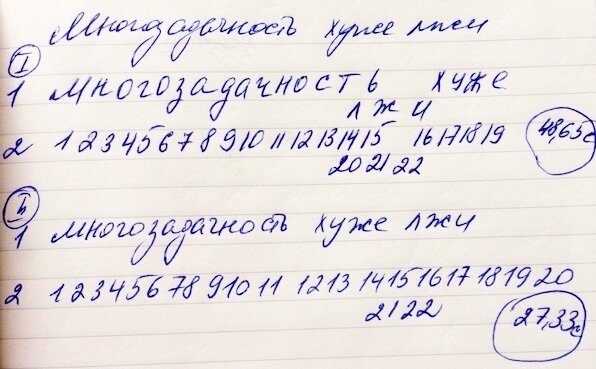 Многозадачность хуже лжи
I
1 многозадачность хуже
лжи
2 1 2 3 4 5 6 7 8 9 10 11 12 13 14 15 16 17 18 19 48,65 с
20 21 22
II
1 многозадачность хуже лжи
2 1 2 3 4 5 6 7 8 9 10 11 12 13 14 15 16 17 18 19 20
21 22 27,33 с